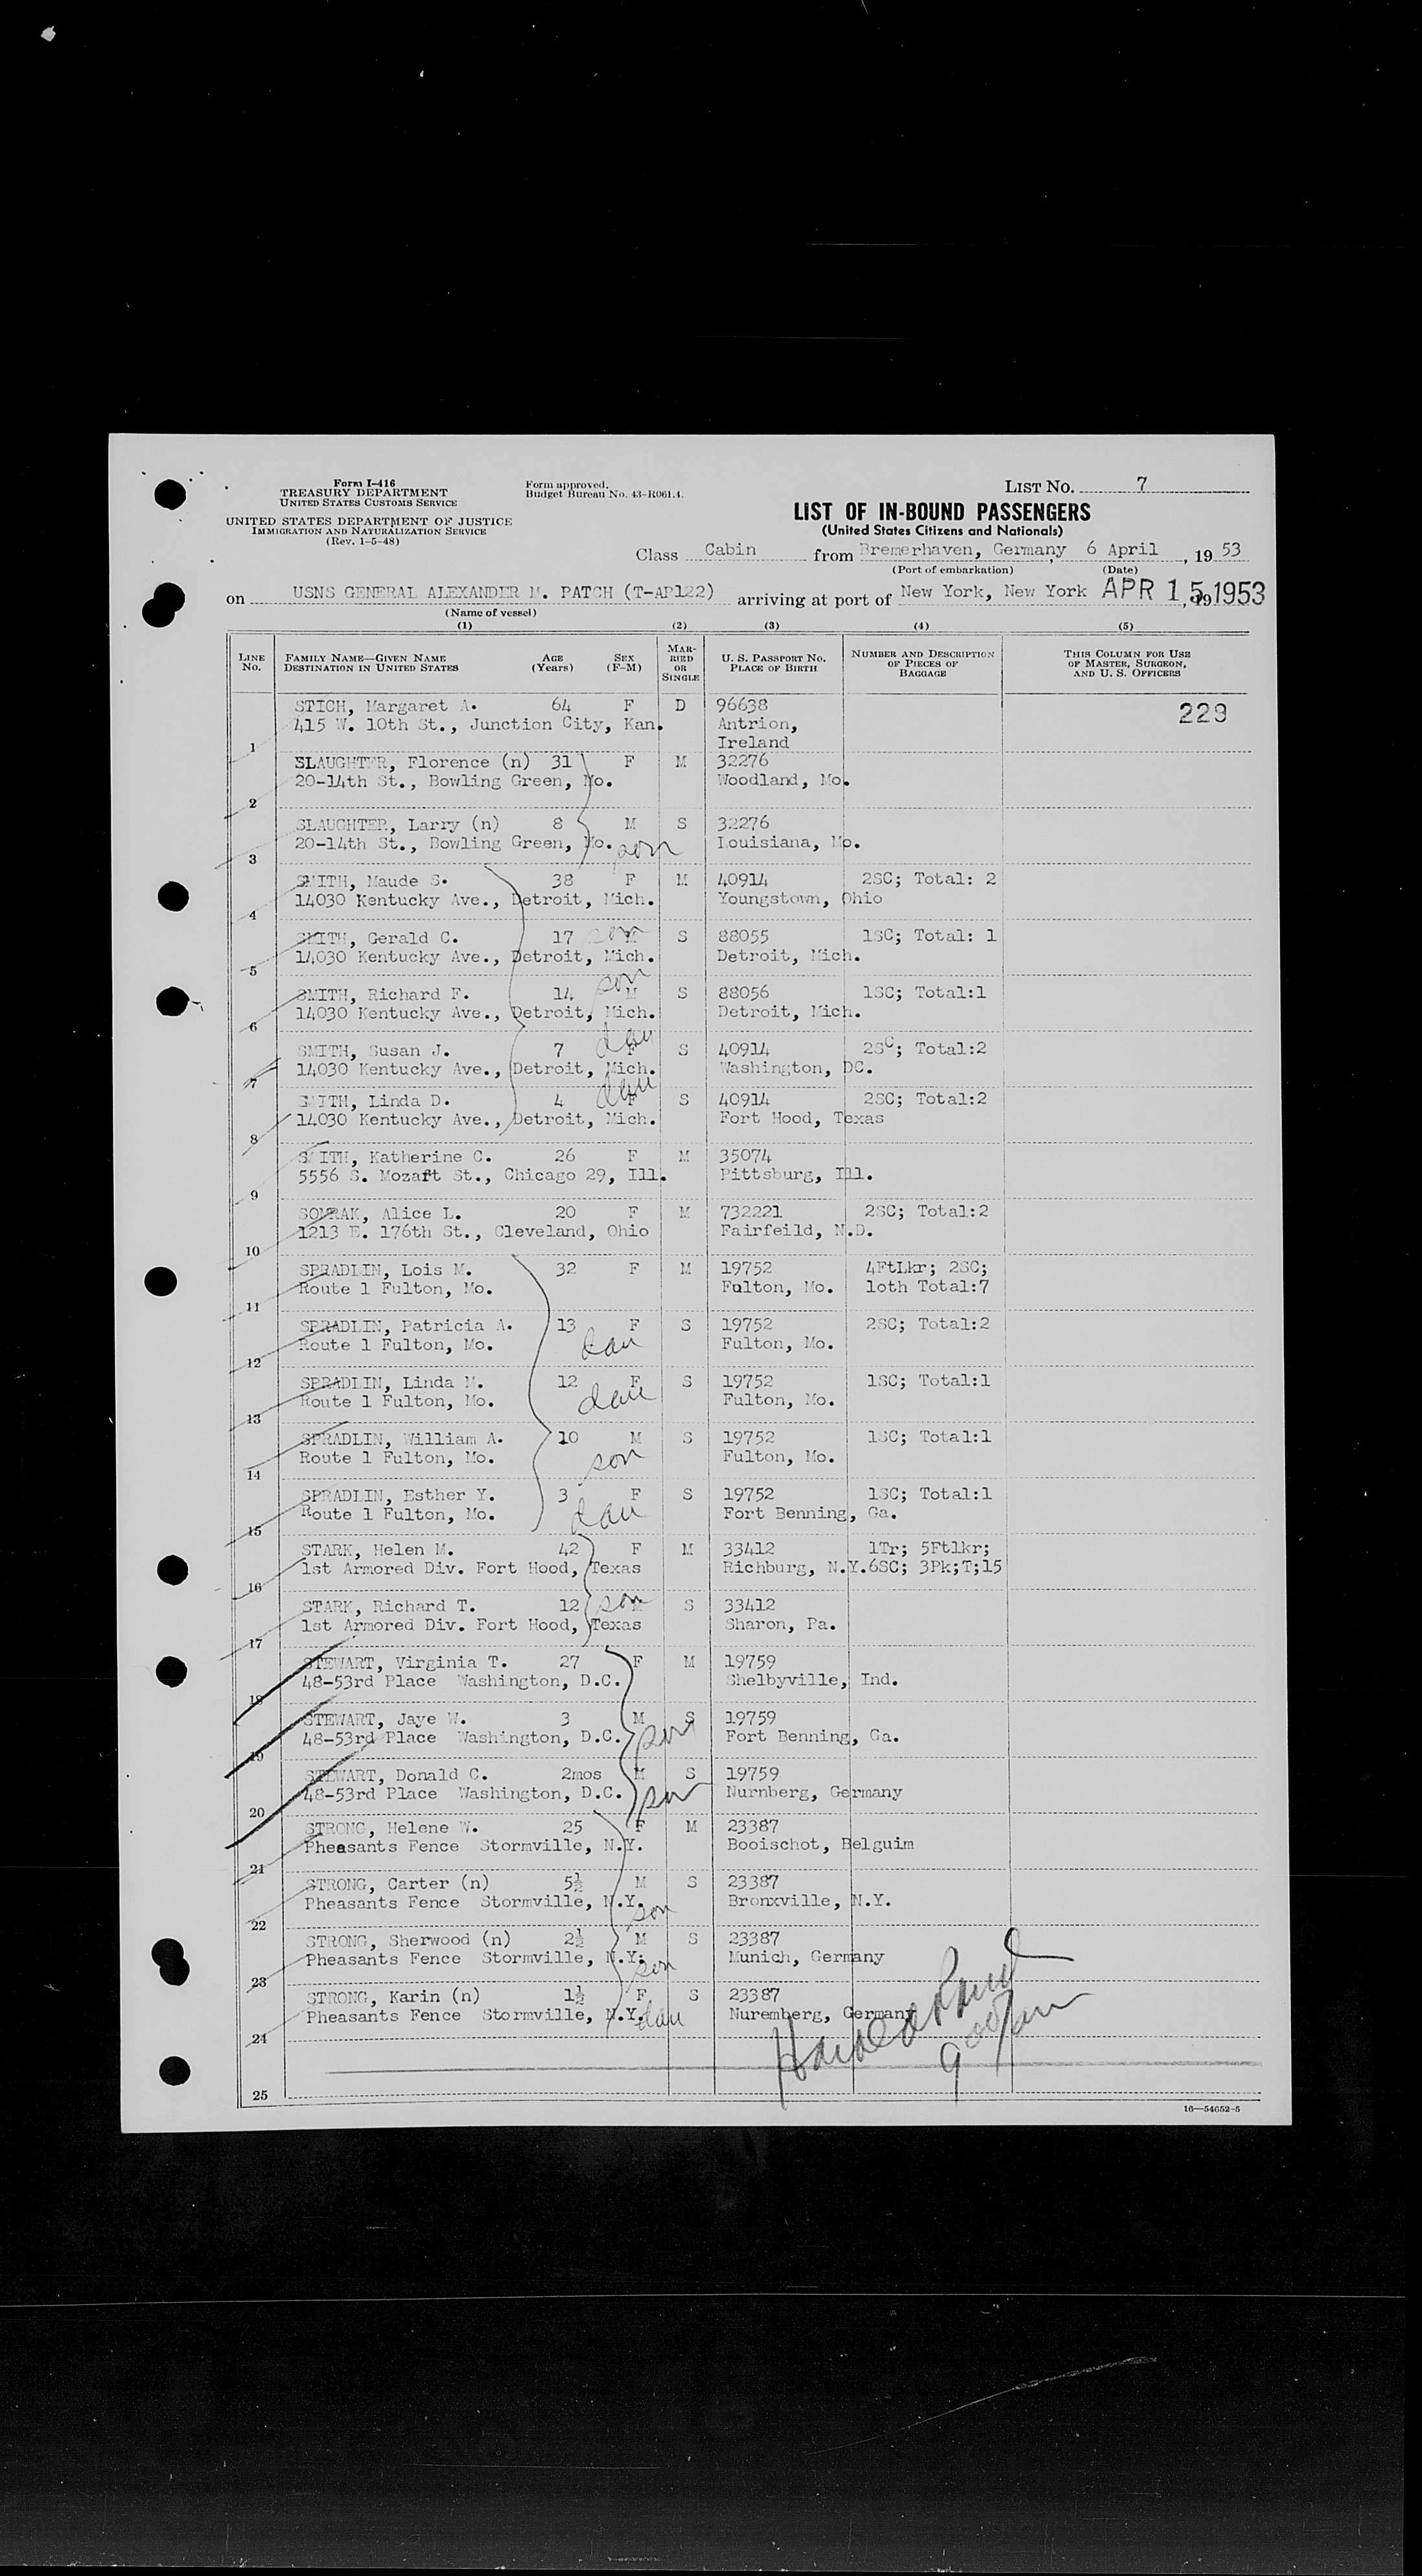 Form I-416
TREASURY DEPARTMENT
UNITED STATES CUSTOMS SERVICE
UNITED STATES DEPARTMENT OF JUSTICE
IMMIGRATION AND NATURALIZATION SERVICE
(Rev. 1-5-48)
Form approved.
Budget Bureau No. 43-R061.4.
LIST NO. 7
LIST OF IN-BOUND PASSENGERS
(United States Citizens and Nationals)
Class Cabin from Bremerhaven, Germany, 6 April, 19 53
(Port of embarkation) (Date)
on USNS GENERAL ALEXANDER M. PATCH (T-AP122) arriving at port of New York, New York APR 15 1953, 19
(Name of vessel)
(1) (2) (3) (4) (5)
LINE NO. FAMILY NAME—GIVEN NAME DESTINATION IN UNITED STATES AGE (Years) SEX (F-M) MARRIED OR SINGLE U. S. PASSPORT NO. PLACE OF BIRTH NUMBER AND DESCRIPTION OF PIECES OF BAGGAGE THIS COLUMN FOR USE OF MASTER, SURGEON, AND U. S. OFFICERS
STICH, Margaret A. 64 F D 96638 229
415 W. 10th St., Junction City, Kan. Antrion,
1 Ireland
SLAUGHTER, Florence (n) 31 F M 32276
20-14th St., Bowling Green, Mo. Woodland, Mo.
2
SLAUGHTER, Larry (n) 8 M S 32276
20-14th St., Bowling Green, Mo. son Louisiana, Mo.
3
SMITH, Maude S. 38 F M 40914 2SC; Total: 2
14030 Kentucky Ave., Detroit, Mich. Youngstown, Ohio
4
SMITH, Gerald C. 17 son M S 88055 1SC; Total: 1
14030 Kentucky Ave., Detroit, Mich. Detroit, Mich.
5
SMITH, Richard F. 14 son M S 88056 1SC; Total:1
14030 Kentucky Ave., Detroit, Mich. Detroit, Mich.
6
SMITH, Susan J. 7 dau F S 40914 2SC; Total:2
14030 Kentucky Ave., Detroit, Mich. Washington, DC.
7
SMITH, Linda D. 4 dau F S 40914 2SC; Total:2
14030 Kentucky Ave., Detroit, Mich. Fort Hood, Texas
8
SMITH, Katherine C. 26 F M 35074
5556 S. Mozart St., Chicago 29, Ill. Pittsburg, Ill.
9
SOMRAK, Alice L. 20 F M 732221 2SC; Total:2
1213 E. 176th St., Cleveland, Ohio Fairfeild, N.D.
10
SPRADLIN, Lois M. 32 F M 19752 4FtLkr; 2SC;
Route 1 Fulton, Mo. Fulton, Mo. 1oth Total:7
11
SPRADLIN, Patricia A. 13 F S 19752 2SC; Total:2
Route 1 Fulton, Mo. dau Fulton, Mo.
12
SPRADLIN, Linda M. 12 F S 19752 1SC; Total:1
Route 1 Fulton, Mo. dau Fulton, Mo.
13
SPRADLIN, William A. 10 M S 19752 1SC; Total:1
Route 1 Fulton, Mo. son Fulton, Mo.
14
SPRADLIN, Esther Y. 3 F S 19752 1SC; Total:1
Route 1 Fulton, Mo. dau Fort Benning, Ga.
15
STARK, Helen M. 42 F M 33412 1Tr; 5Ftlkr;
1st Armored Div. Fort Hood, Texas Richburg, N.Y. 6SC; 3Pk;T;15
16
STARK, Richard T. 12 son M S 33412
1st Armored Div. Fort Hood, Texas Sharon, Pa.
17
STEWART, Virginia T. 27 F M 19759
48-53rd Place Washington, D.C. Shelbyville, Ind.
18
STEWART, Jaye W. 3 M S 19759
48-53rd Place Washington, D.C. son Fort Benning, Ga.
19
STEWART, Donald C. 2mos M S 19759
48-53rd Place Washington, D.C. son Nurnberg, Germany
20
STRONG, Helene W. 25 F M 23387
Pheasants Fence Stormville, N.Y. Booischot, Belguim
21
STRONG, Carter (n) 5½ M S 23387
Pheasants Fence Stormville, N.Y. son Bronxville, N.Y.
22
STRONG, Sherwood (n) 2½ M S 23387
Pheasants Fence Stormville, N.Y. son Munich, Germany
23
STRONG, Karin (n) 1½ F S 23387
Pheasants Fence Stormville, N.Y. dau Nuremberg, Germany
24
25
16—54652-5